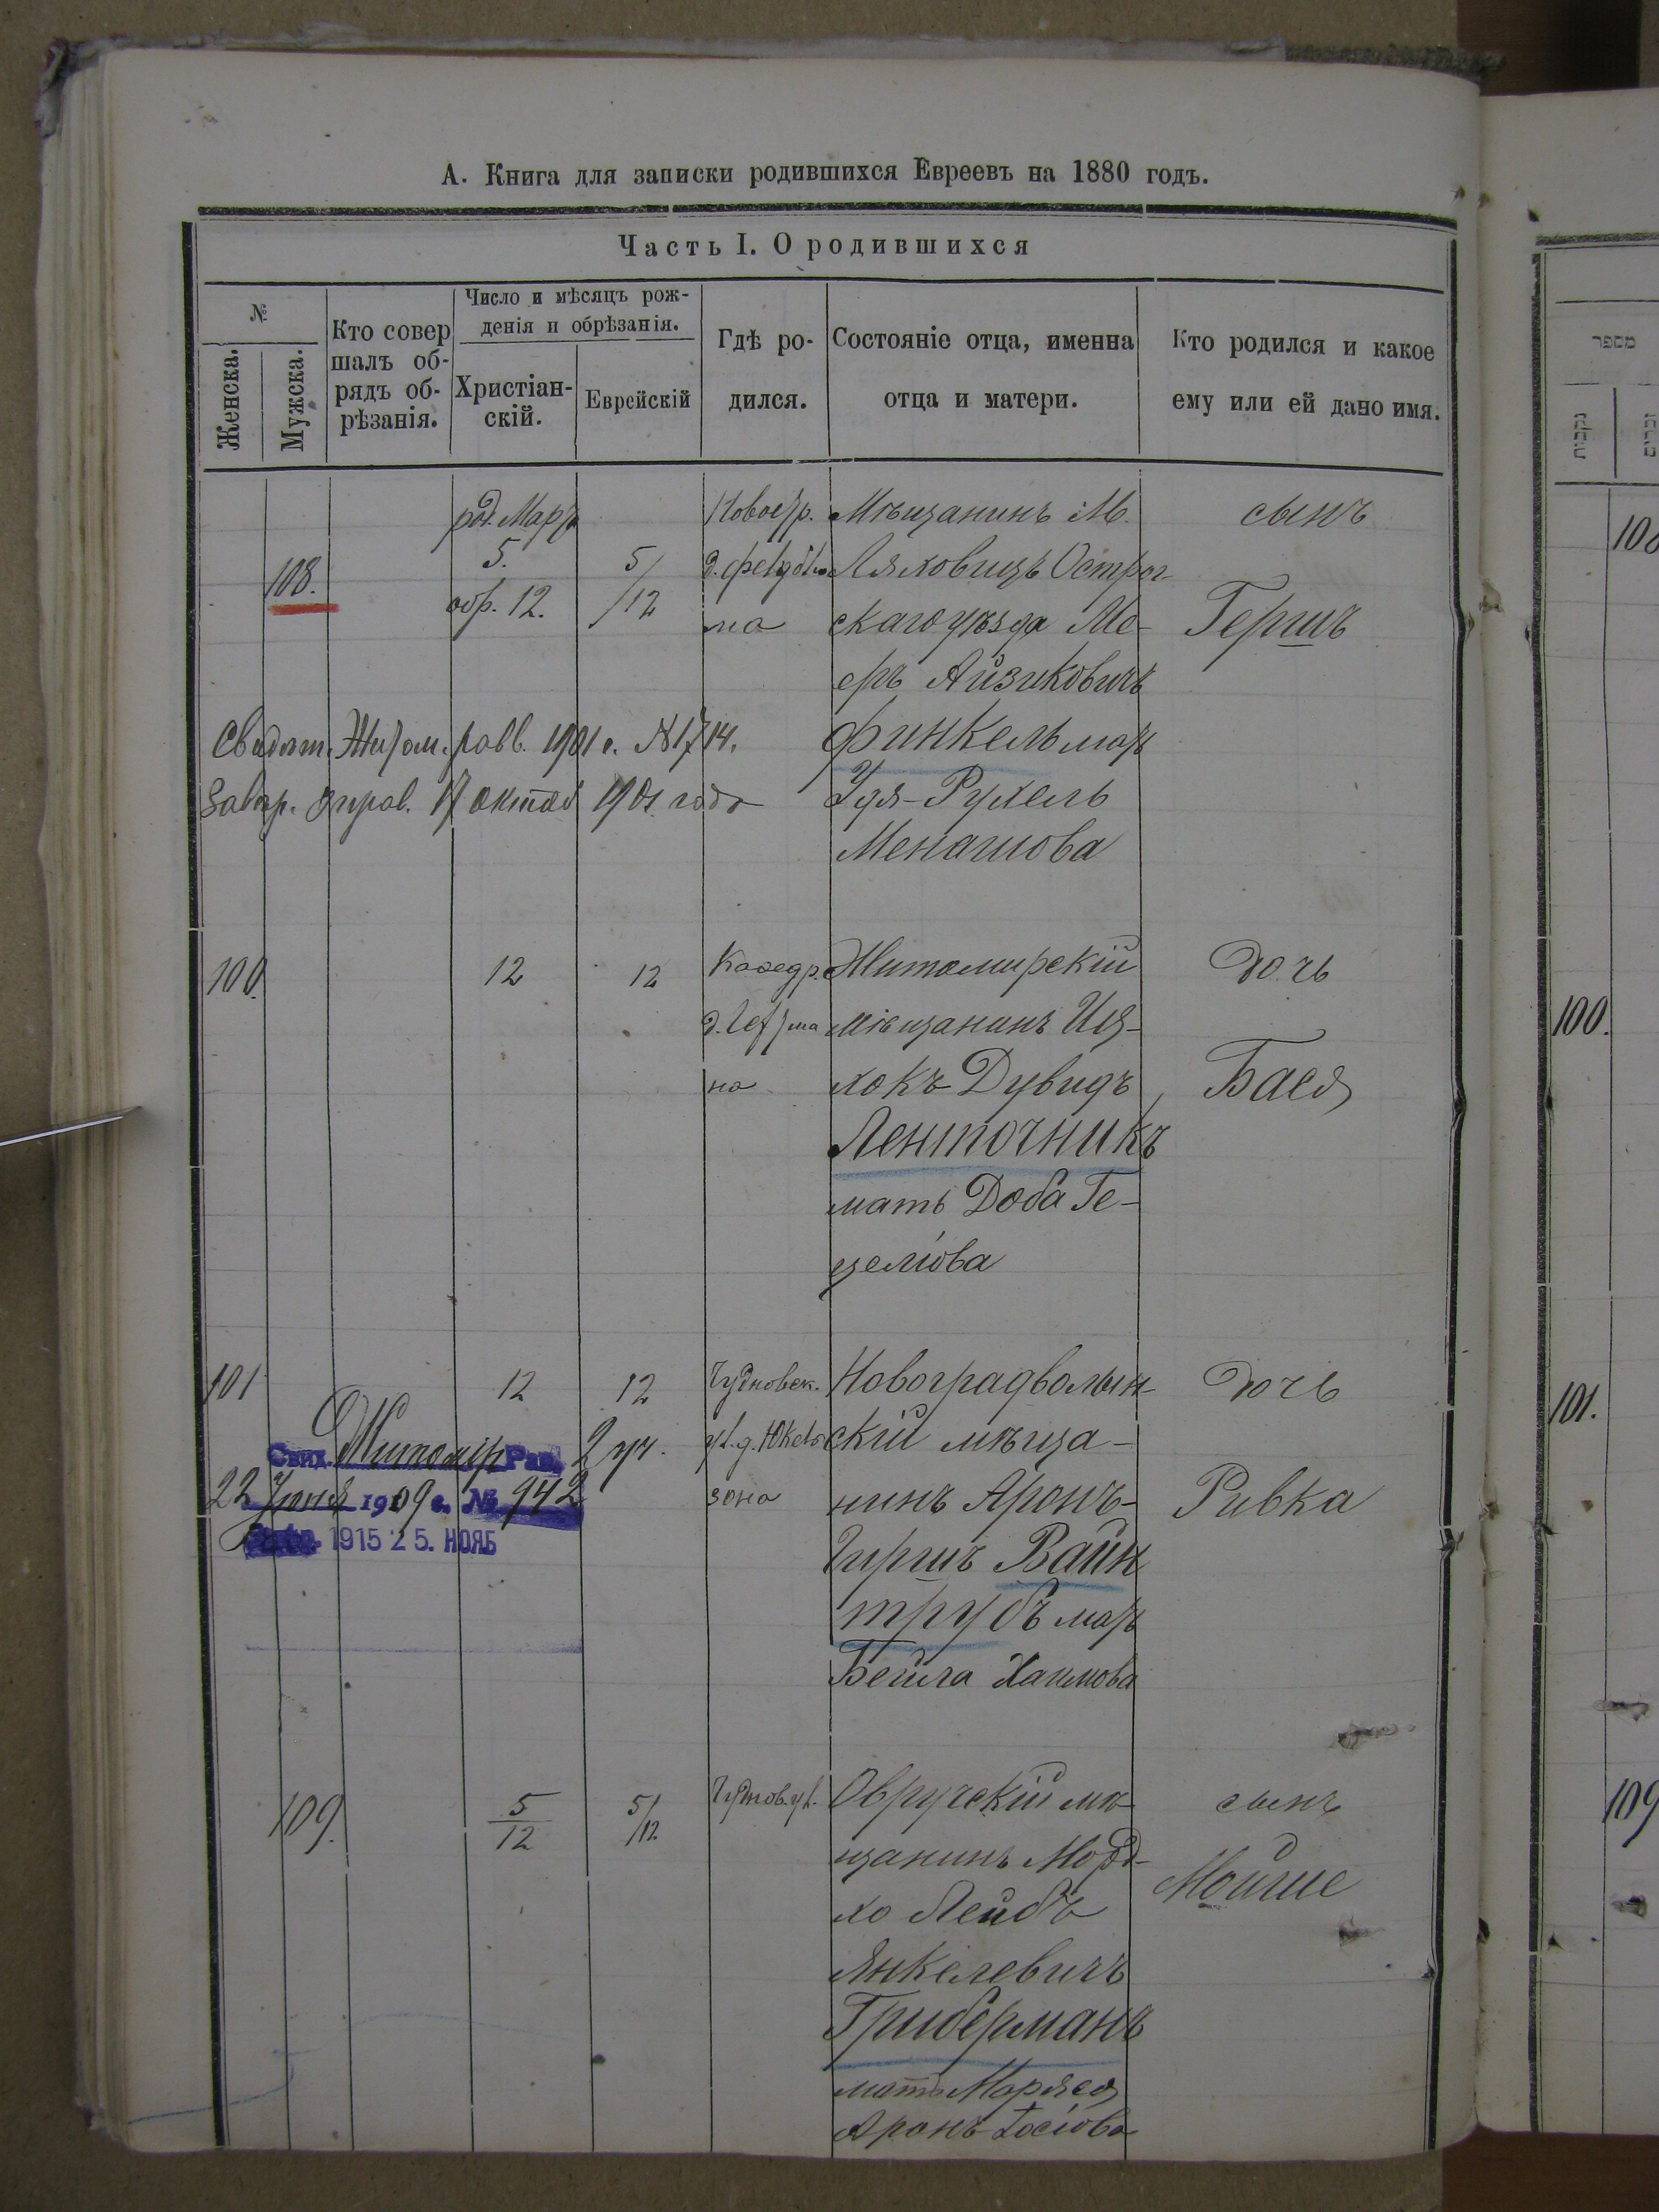 А. Книга для записки родившихся Евреевъ на 1880 годъ.
Часть I. О родившихся
№
Женска.
Мужска.
Кто совер
шалъ об-
рядъ об-
рѣзанія.
Число и мѣсяцъ рож-
денія и обрѣзанія.
Христіан-
скій.
Еврейскій
Гдѣ ро-
дился.
Состояніе отца, именна
отца и матери.
Кто родился и какое
ему или ей дано имя.
108.
род. Март
5.
обр. 12.
5/12
на
Мѣщанинъ М.
Ляховицъ Острог-
скаго уѣзда Ме-
еръ Айзиковичъ
Финкель мат
Удя-Рухель
Менашова
сынъ
Гершъ
Свидѣт. Житом. равв. 1901 г. № 1714.
17 октяб 1901 года
100.
12
12
Кафедр.
на
Житомирскій
мѣщанинъ Иц-
хокъ Дувидъ
Ленточникъ
мать Доба Ге-
целіова
дочь
Бася
101
12
12
Чудновск.
зона
Новоградволын-
скій мѣща-
нинъ Аронъ-
Гиршъ Вайн
трубъ мат
Бейла Хаимова
дочь
Ривка
Свид. Житомір Рав. 2 уч.
22 Іюня 1909 г. № 942
1915 25. НОЯБ
109.
5
12
5/12
Чуднов. ул.
Овручскій мѣ
щанинъ Морд-
хо Лейбъ
Янкелевичъ
Грибермань
мать Маряся
Аронъ Іосіова
сынъ
Мойше
מספר
נקבות
זכרים
108
100.
101.
109